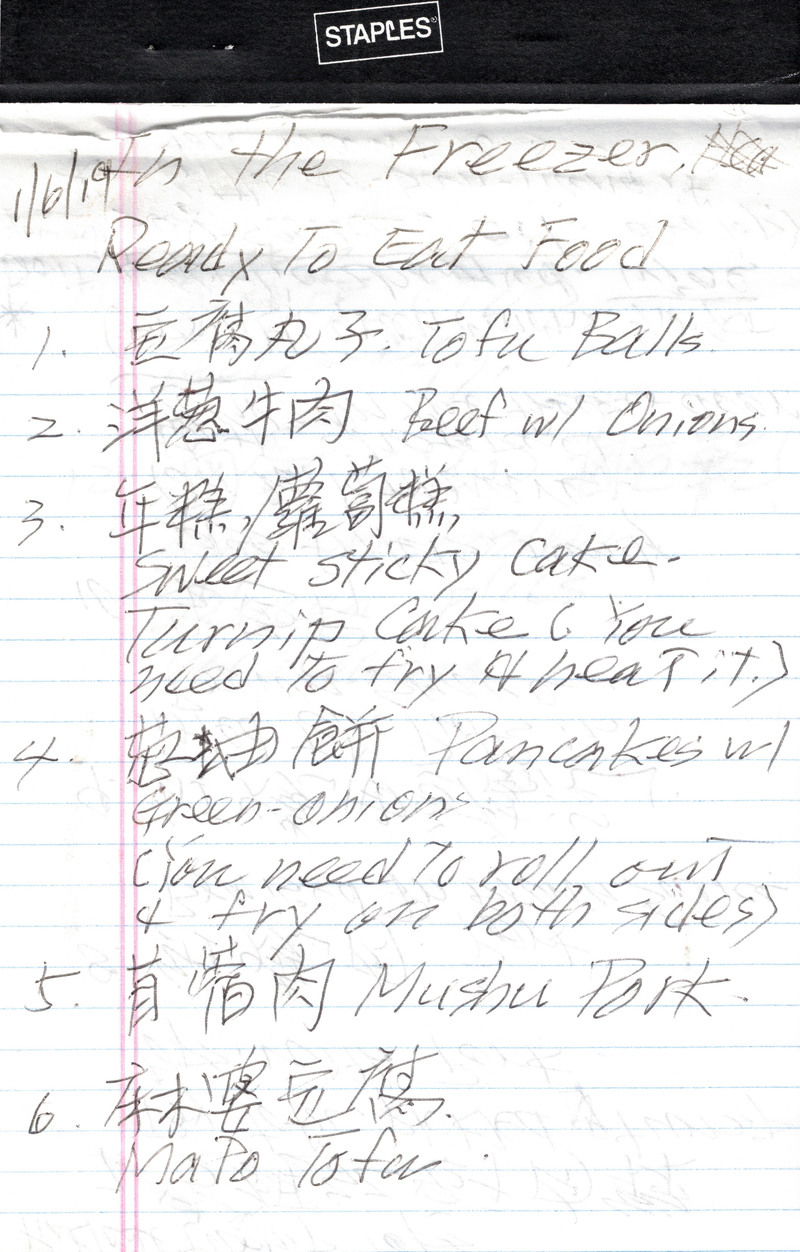 STAPLES
In the Freezer.
1/6/19
Ready To Eat Food
1. 豆腐丸子. Tofu Balls
2. 洋蔥牛肉 Beef w/ Onions.
3. 年糕, 蘿蔔糕,
Sweet sticky Cake.
Turnip Cake (You
need to fry & heat it.)
4. 葱油餅 Pancakes w/
Green-onions.
(You need to roll out
& fry on both sides)
5. 肉 Mushu Pork.
6. 麻婆豆腐.
MaPo Tofu.